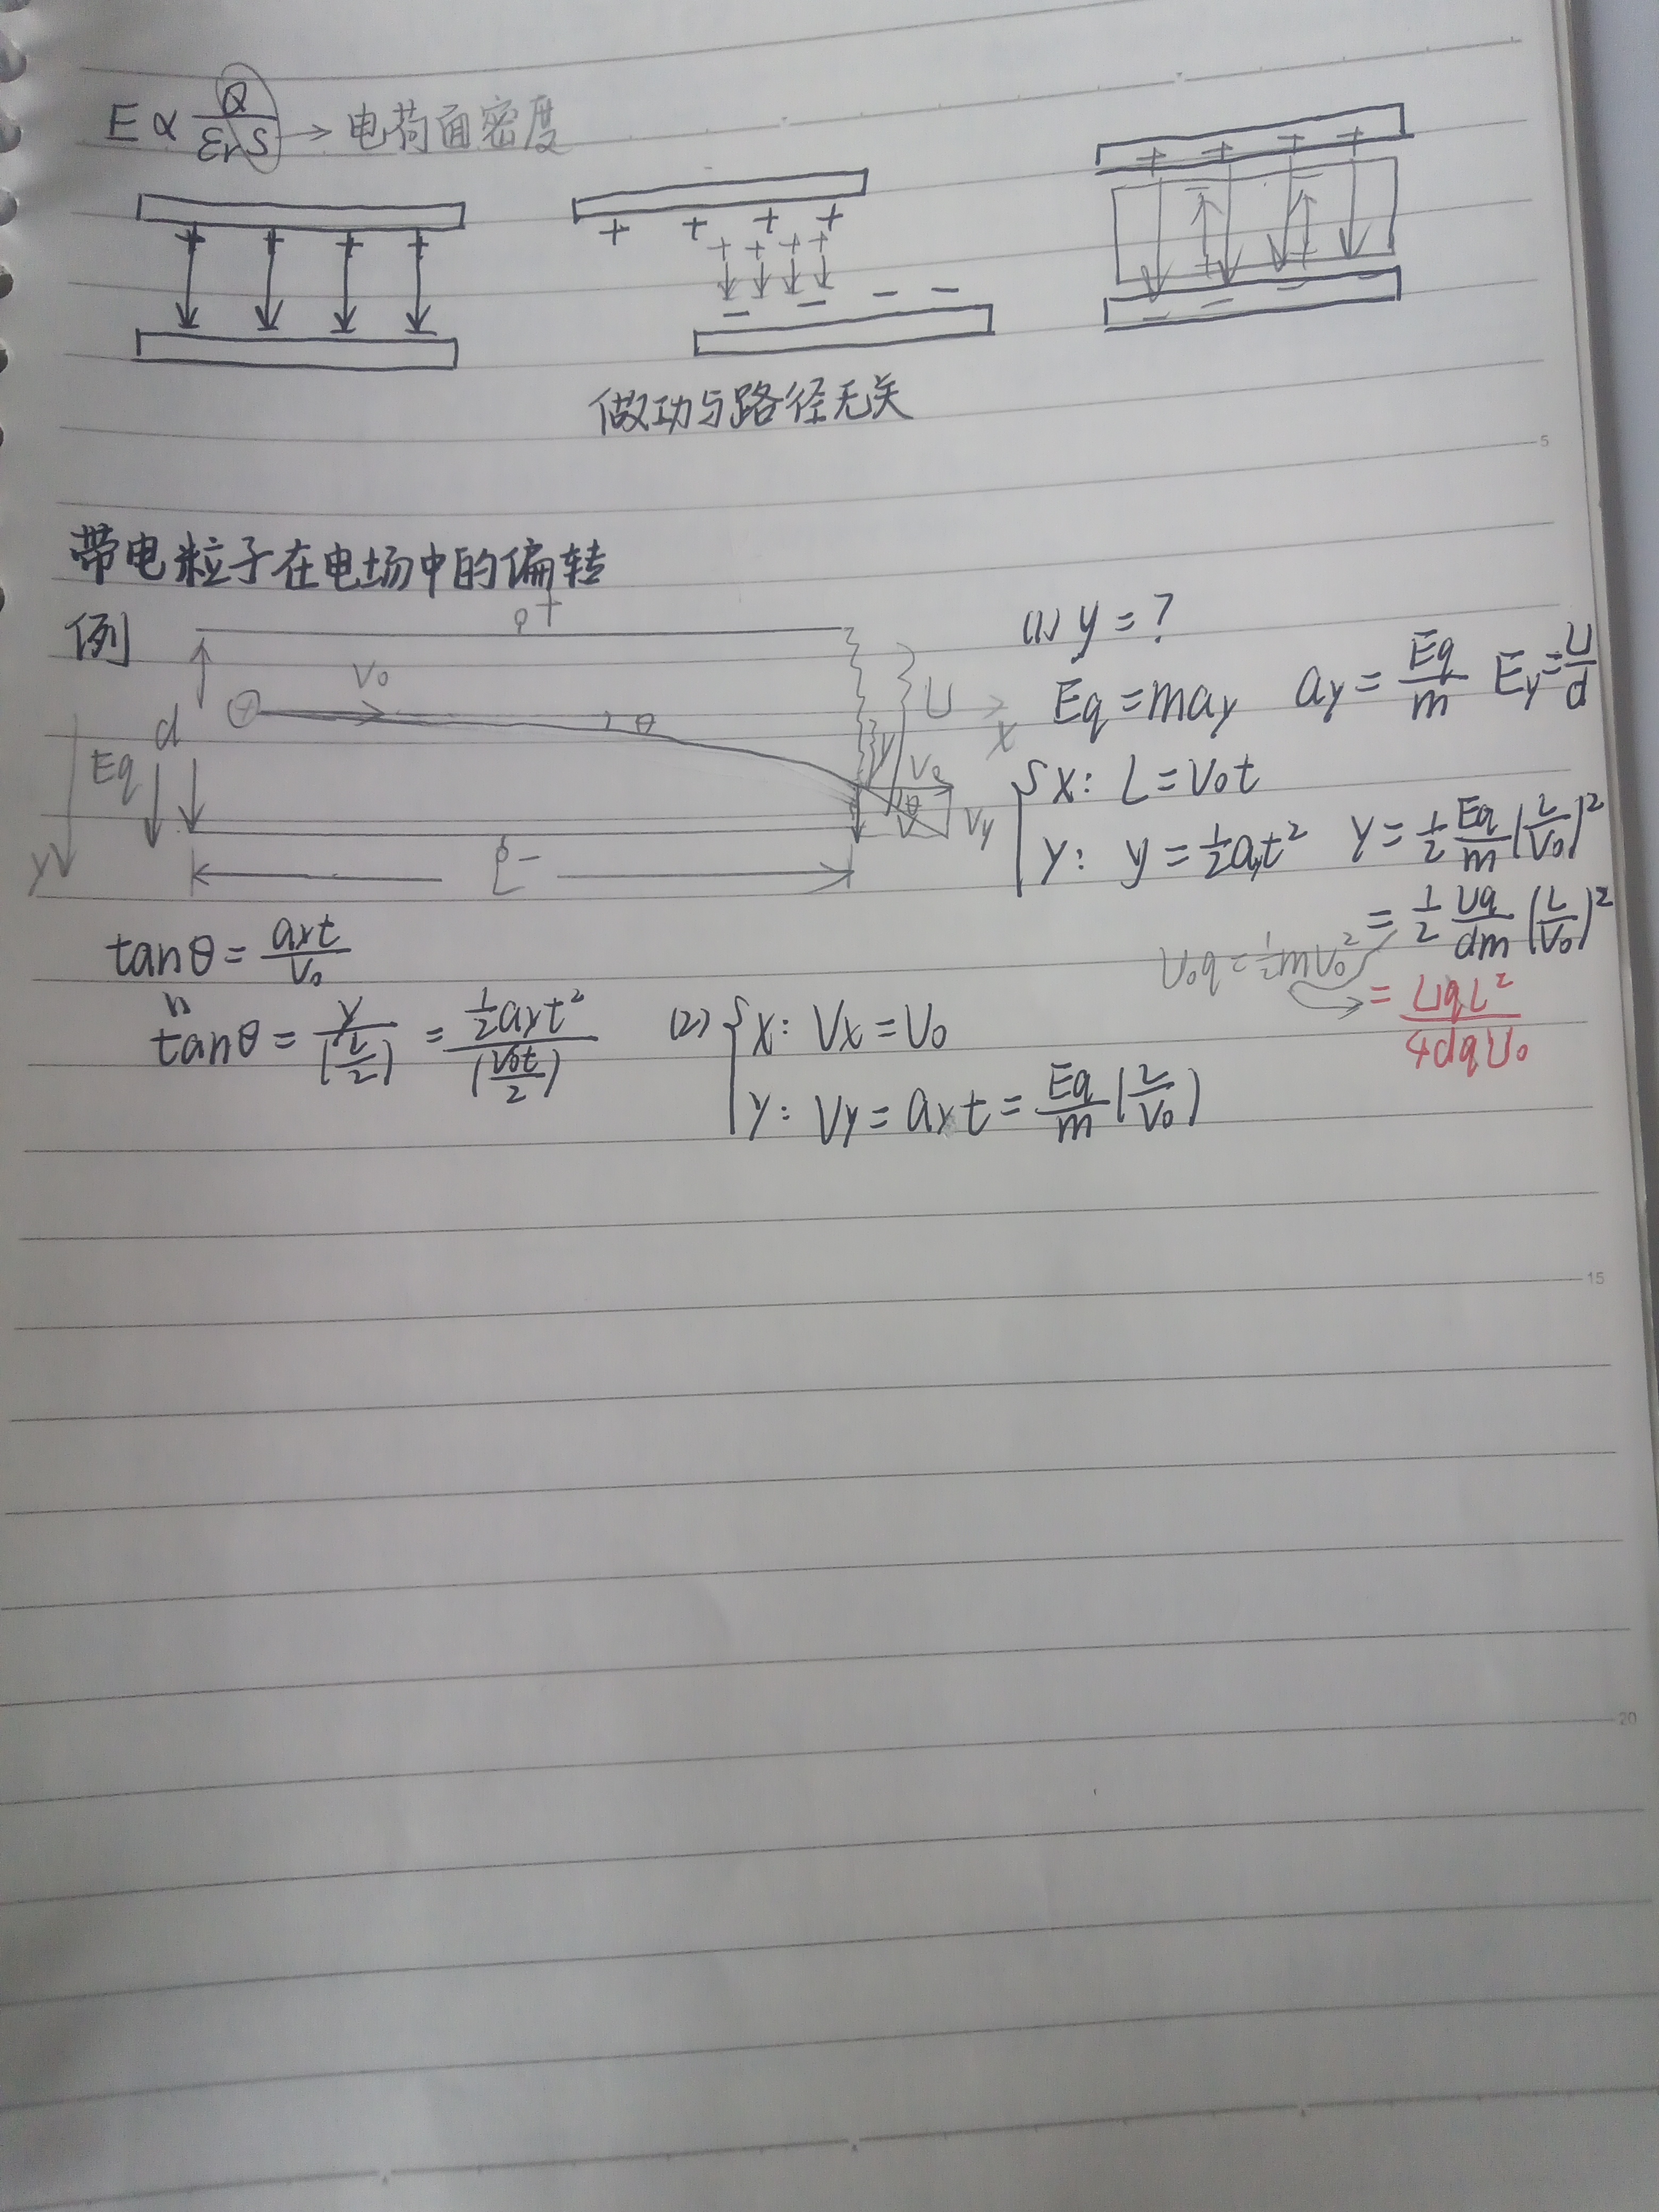 E ∝ Q/(εrS) → 电荷面密度
+ + + +
+ + + +
+ + + +
− − − −
+ + + +
− −
+ +
− − −
做功与路径无关
5
带电粒子在电场中的偏转
例
+
V₀
d
Eq
θ
U
x
y
V₀
θ
V
Vy
y
L
−
(1) y = ?
Eq = may  ay = Eq/m  Ey = U/d
{ x: L = V₀t
y: y = ½ayt²  y = ½ Eq/m (L/V₀)²
= ½ Uq/dm (L/V₀)²
U₀q = ½mV₀²
= UqL²/4dqU₀
tanθ = ayt/V₀
tanθ = y/(L/2) = ½ayt²/(V₀t/2)
(2) { x: Vx = V₀
y: Vy = ayt = Eq/m (L/V₀)
15
20